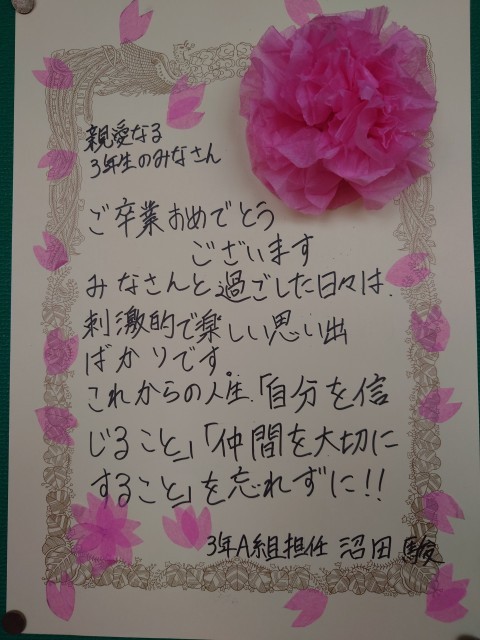 親愛なる
3年生のみなさん
ご卒業おめでとう
ございます
みなさんと過ごした日々は、
刺激的で楽しい思い出
ばかりです。
これからの人生、「自分を信
じること」「仲間を大切に
すること」を忘れずに!!
3年A組担任 沼田 駿